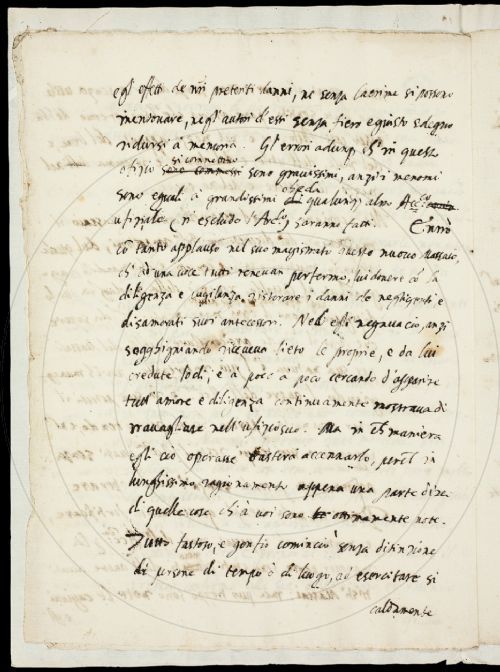 egl' effetti de nři preteriti danni, ne senza lacrime si possono
mentovare, ne gl'autori d'essi senza fiero e giusto sdegno
ridursi à memoria. Gl'errori adunq; ch'in questo
ofitio si commettono sono gravissimi, anzi i menomi
sono eguali à grandissimi di qualunq; altro
ufiziale (ne escludo l'Arcᶜᵒ) saranno fatti. Entrò
cō tanto applauso nel suo magistrato questo nuovo Massaio,
ch'ad una voce tutti tenevan per fermo, lui dovere cō la
diligenza e vigilanza, ristorare i danni de neghigenti e
disamorati suoi antecessori. Ned' egli negava ciò, anzi
sogghignando riceveva lieto le proprie, e da lui
credute lodi, e à poco à poco cercando d'apparire
tutt'amore e diligenza continuamente mostrava di
travagliare nell'ufizio suo. Ma in ch̃ maniera
egli ciò operasse basterà accennarlo, perch̃ in
lunghissimo ragionamento appena una parte direi
di quelle cose ch'à voi sono ottimamente note.
Tutto fastoso, e gonfio cominciò senza distinzione
di persone di tempo ò di luogo, ad esercitare si
caldamente